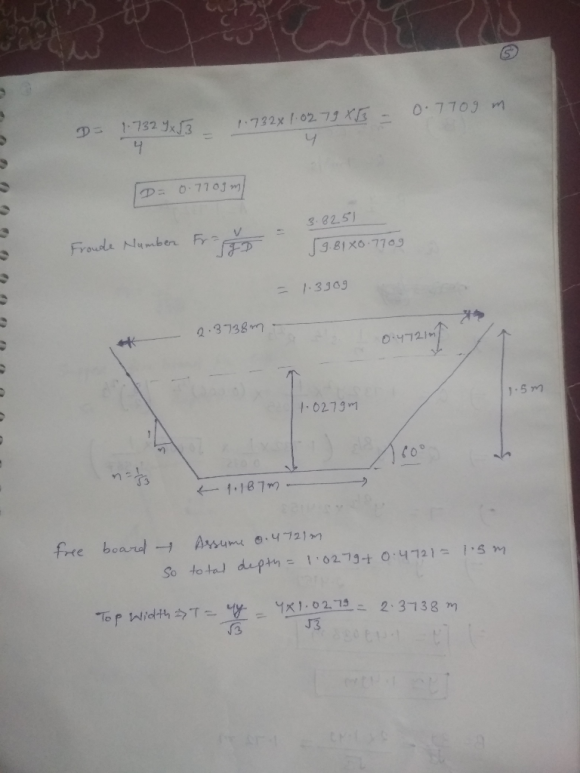 5
D = 1.732 y×√3 / 4 = 1.732×1.0279×√3 / 4 = 0.7709 m
D = 0.7709 m
Froude Number Fr = V / √gD = 3.8251 / √9.81×0.7709
= 1.3909
2.3738m
0.4721m
1.0279m
1.5m
1
n
n = 1/√3
60°
1.187m
free board → Assume 0.4721m
So total depth = 1.0279 + 0.4721 = 1.5 m
Top width ⇒ T = 4y/√3 = 4×1.0279/√3 = 2.3738 m